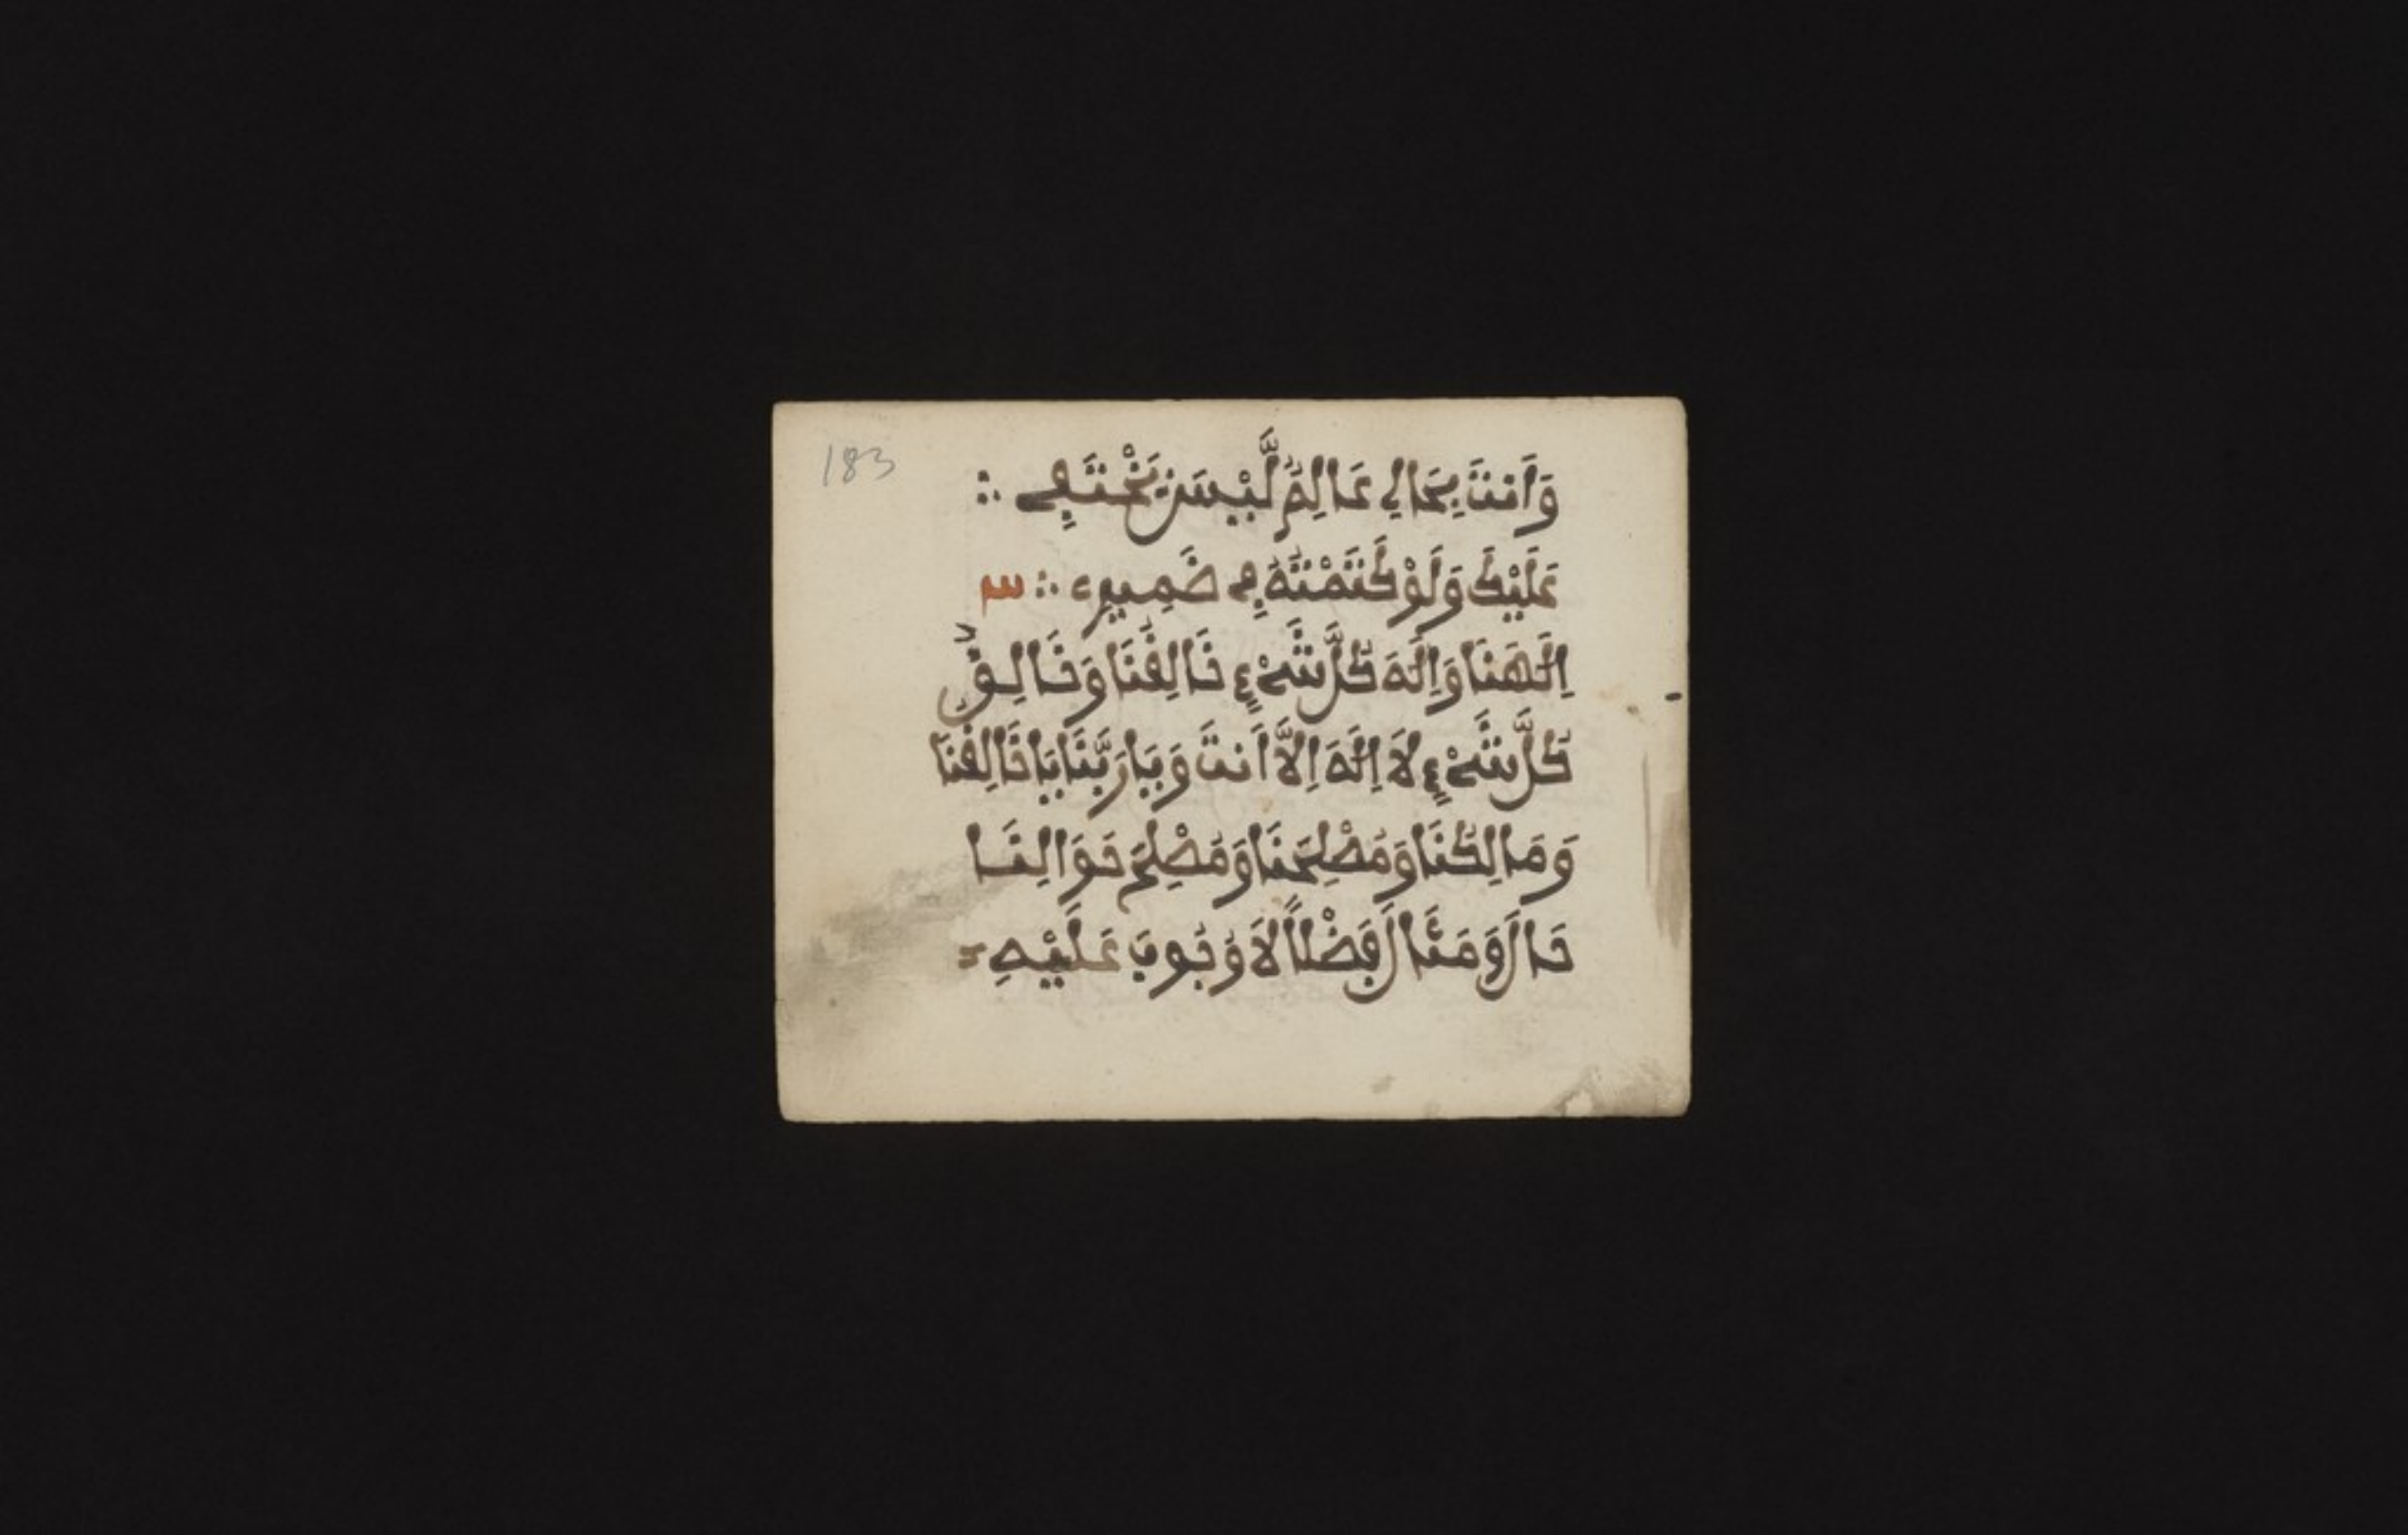 183
وَاَنتَ بِحَالِي عَالِمٌ لَّيْسَ يَخْتَفِي ∴
عَلَيْكَ وَلَوْ كَتَمْتَهُ فِي ضَمِيرِي ∴
اِلَهَنَا وَاِلَهَ كُلِّ شَيْءٍ خَالِقُنَا وَخَالِقُ
كُلِّ شَيْءٍ لَا اِلَهَ اِلَّا اَنتَ وَيَا رَبَّنَا يَا خَالِقَنَا
وَمَالِكُنَا وَمُصْلِحَنَا وَمُصْلِحَ حَوَالِنَا
حَالَ وَمَئَالَ فَضْلًا لَا وُجُوبَ عَلَيْهِ